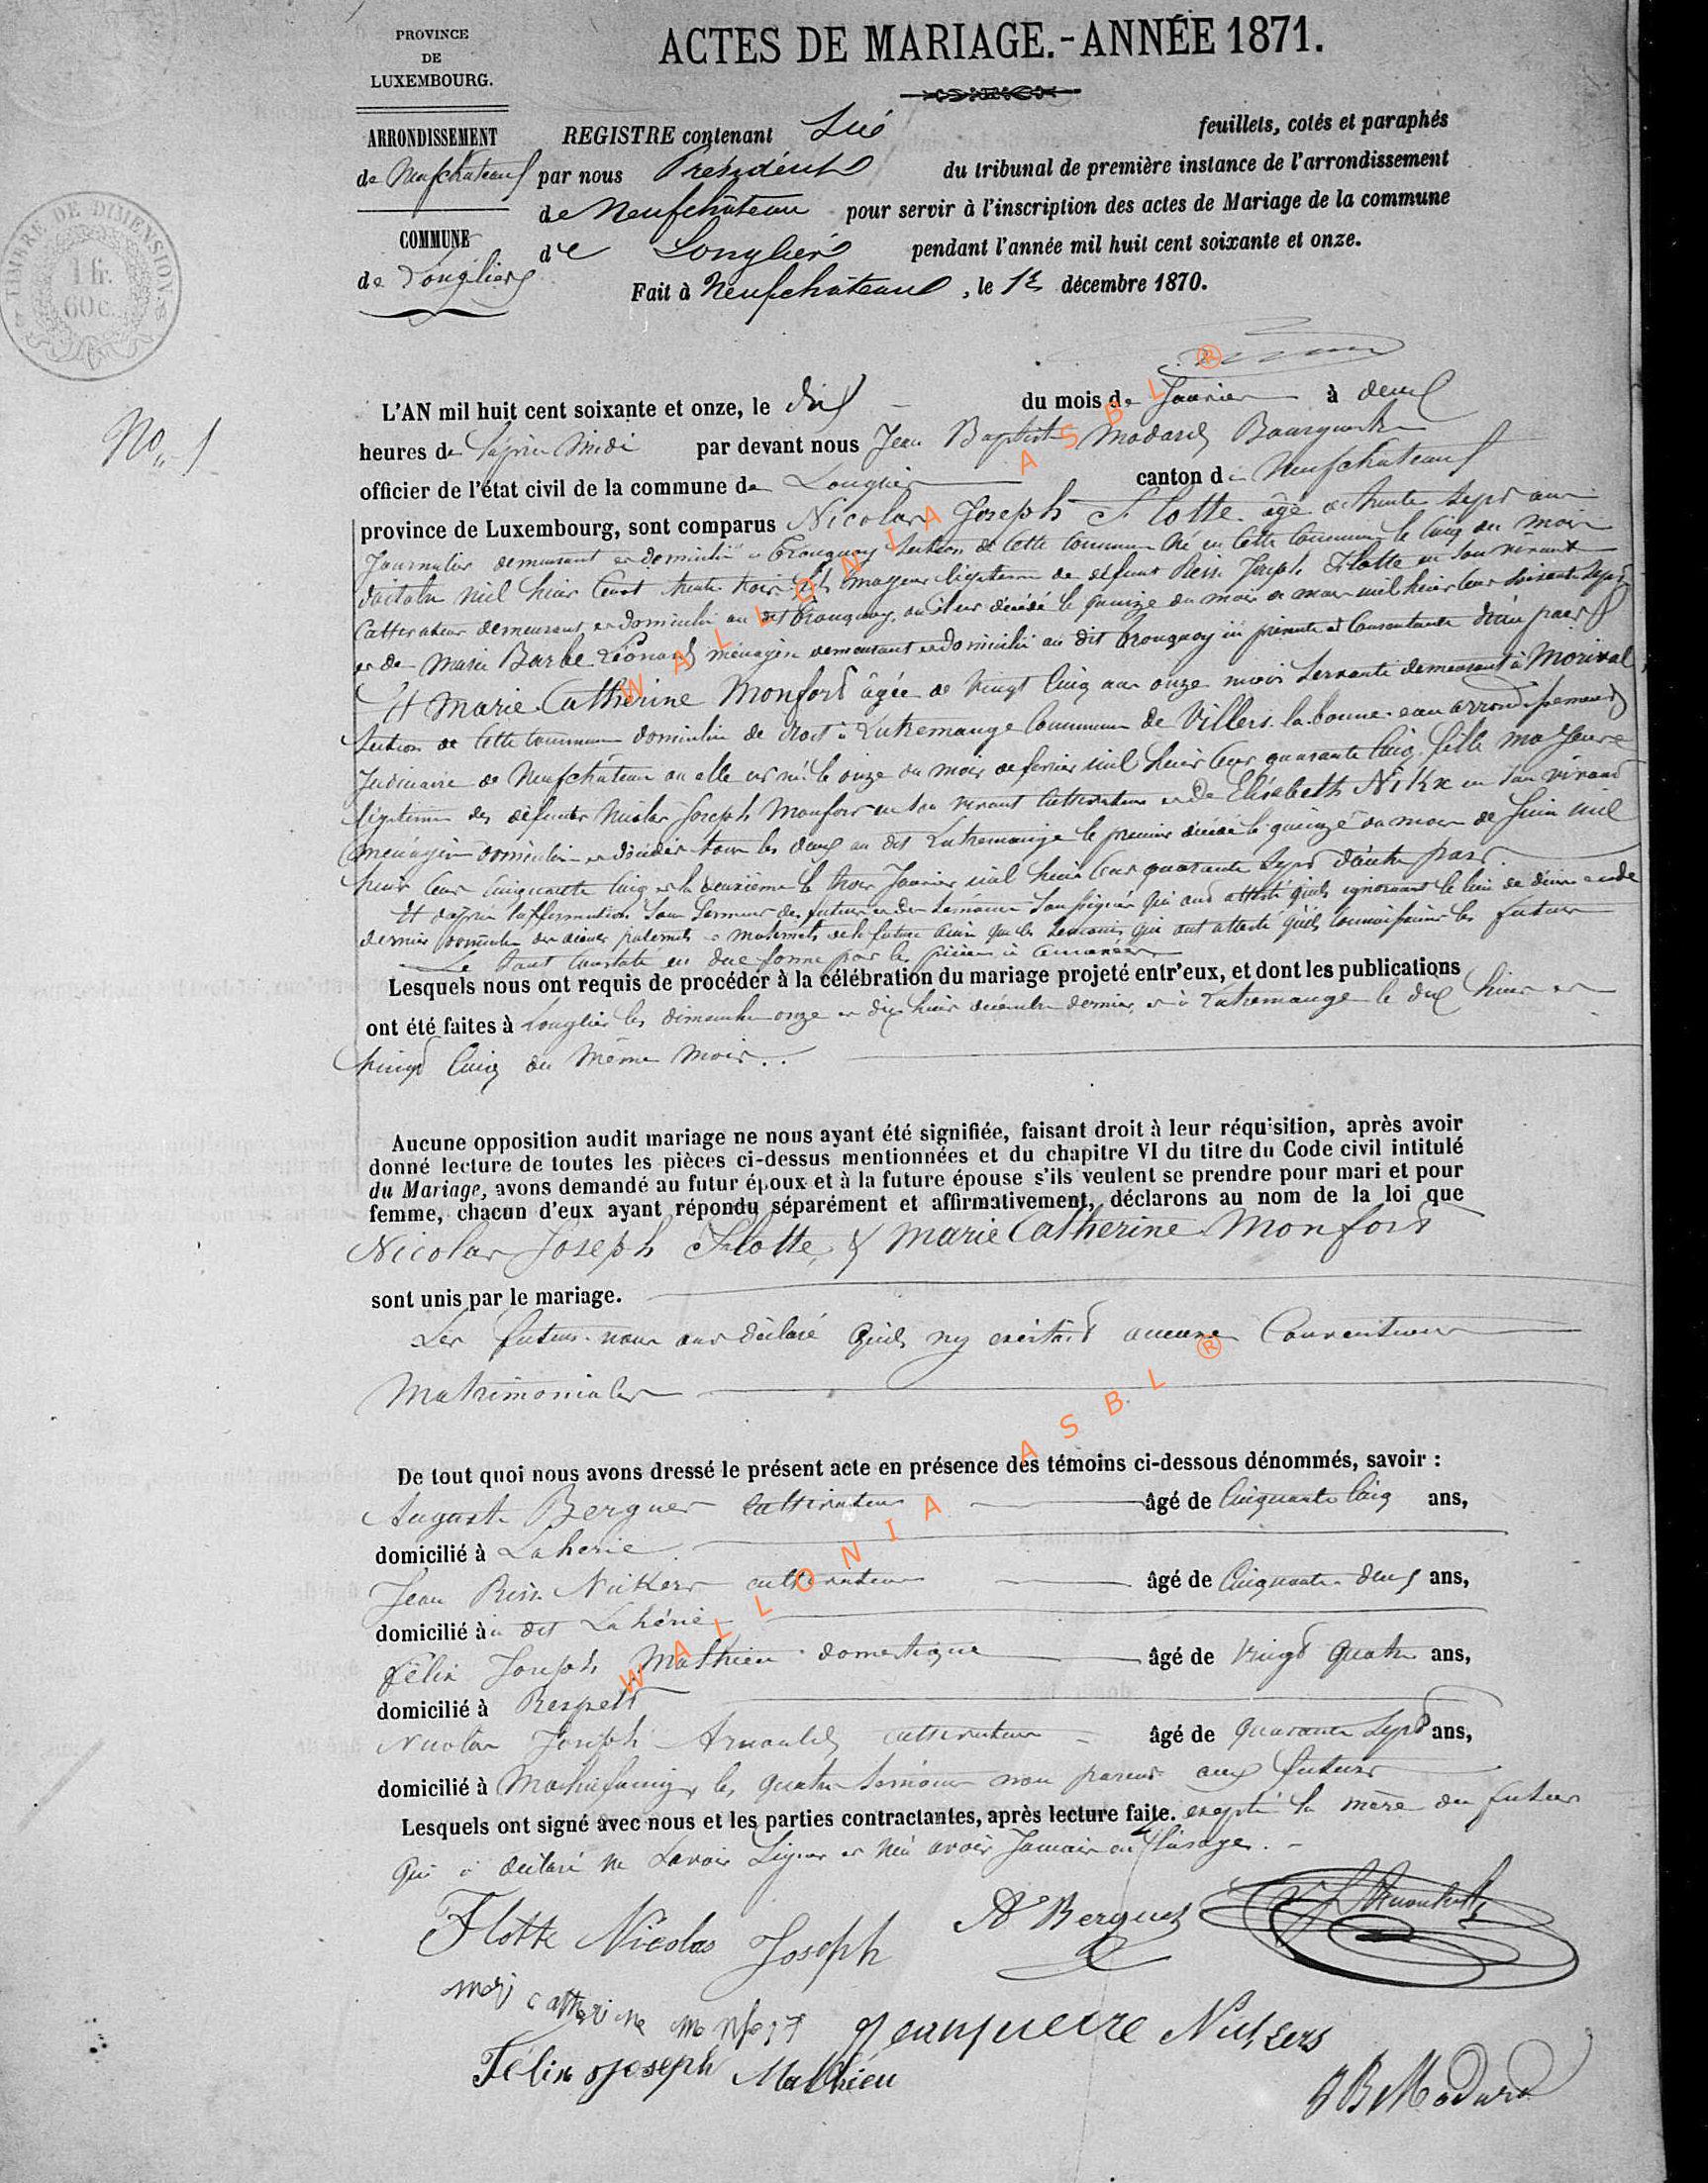 PROVINCE
DE
LUXEMBOURG.
ACTES DE MARIAGE.-ANNÉE 1871.
ARRONDISSEMENT
de Neufchateau
COMMUNE
de Longlier
TIMBRE DE DIMENSION
1 fr.
60 c.
REGISTRE contenant feuillets, cotés et paraphés
par nous Président du tribunal de première instance de l'arrondissement
de Neufchâteau pour servir à l'inscription des actes de Mariage de la commune
de Longlier pendant l'année mil huit cent soixante et onze.
Fait à Neufchâteau, le 1er décembre 1870.
No. 1
L'AN mil huit cent soixante et onze, le dix du mois de Janvier à deux
heures de l'après midi par devant nous Jean Baptiste Modard Bourgmestre
officier de l'état civil de la commune de Longlier canton de Neufchateau
province de Luxembourg, sont comparus Nicolas Joseph Flotte âgé de trente sept ans
Journalier demeurant et domicilié à Tronquoy Section de cette Commune né en cette Commune le cinq du mois
d'octobre mil huit cent trente trois fils majeur légitime de défunt Pierre Joseph Flotte en son vivant
Cultivateur demeurant et domicilié au dit Tronquoy, où il est décédé le quinze du mois de mars mil huit cent soixante sept
et de Marie Barbe Léonard ménagère demeurant et domiciliée au dit Tronquoy ici présente et Consentante d'une part
Et Marie Catherine Monfort âgée de vingt cinq ans onze mois Servante demeurant à Morival
Section de cette commune domiciliée de droit à Lutremange Commune de Villers-la-bonne-eau arrondissement
Judiciaire de Neufchâteau où elle est née le onze du mois de février mil huit cent quarante cinq, fille majeure
légitime des défunts Nicolas Joseph Monfort en son vivant Cultivateur et de Elisabeth Nikx en son vivant
ménagère domiciliés et décédés tous les deux au dit Lutremange le premier décédé le quinze du mois de Juin mil
huit cent cinquante cinq et la deuxième le trois Janvier mil huit cent quarante sept d'autre part.
Et d'après l'affirmation sous Serment des futurs et des témoins Soussignés qui ont attesté qu'ils ignoraient le lieu de décès et de
dernier domicile des aïeux paternels et maternels de la future ainsi que les témoins qui ont attesté qu'ils connaissaient les futurs
Le tout constaté en due forme par les pièces ci annexées
Lesquels nous ont requis de procéder à la célébration du mariage projeté entr'eux, et dont les publications
ont été faites à Longlier les dimanches onze et dix huit décembre dernier, et à Lutremange le dix huit et
vingt cinq du même mois.
Aucune opposition audit mariage ne nous ayant été signifiée, faisant droit à leur réquisition, après avoir
donné lecture de toutes les pièces ci-dessus mentionnées et du chapitre VI du titre du Code civil intitulé
du Mariage, avons demandé au futur époux et à la future épouse s'ils veulent se prendre pour mari et pour
femme, chacun d'eux ayant répondu séparément et affirmativement, déclarons au nom de la loi que
Nicolas Joseph Flotte, & Marie Catherine Monfort
sont unis par le mariage.
Les futurs nous ont déclaré qu'il n'y existait aucune Conventions
Matrimoniales
De tout quoi nous avons dressé le présent acte en présence des témoins ci-dessous dénommés, savoir :
August Berguet cultivateur âgé de Cinquante Cinq ans,
domicilié à Laherie
Jean Pierre Nickers cultivateur âgé de Cinquante deux ans,
domicilié à dit Lahérie
Félix Joseph Mathieu domestique âgé de vingt quatre ans,
domicilié à Respelt
Nicolas Joseph Arnould cultivateur âgé de quarante sept ans,
domicilié à les quatre témoins non parents aux futurs
Lesquels ont signé avec nous et les parties contractantes, après lecture faite. excepté la mère du futur
qui a déclaré ne savoir signer et n'en avoir Jamais eu l'usage.
Flotte Nicolas Joseph
Ate Berguet
mari catherine monfort
jeanpierre Nickers
Félix Joseph Mathieu
JB Modard
WALLONIA ASBL ®
WALLONIA ASBL ®